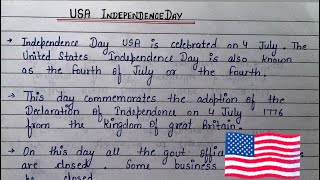 USA INDEPENDENCE DAY
→ Independence Day USA is celebrated on 4 July. The
United States Independence Day is also known
as the Fourth of July or the Fourth.
→ This day commemorates the adoption of the
Declaration of Independence on 4 July 1776
from the kingdom of great Britain.
→ On this day all the govt offic
are closed. Some business
be closed